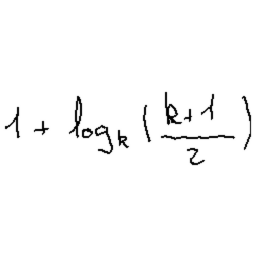 1 + log_k (\frac{k+1}{2})